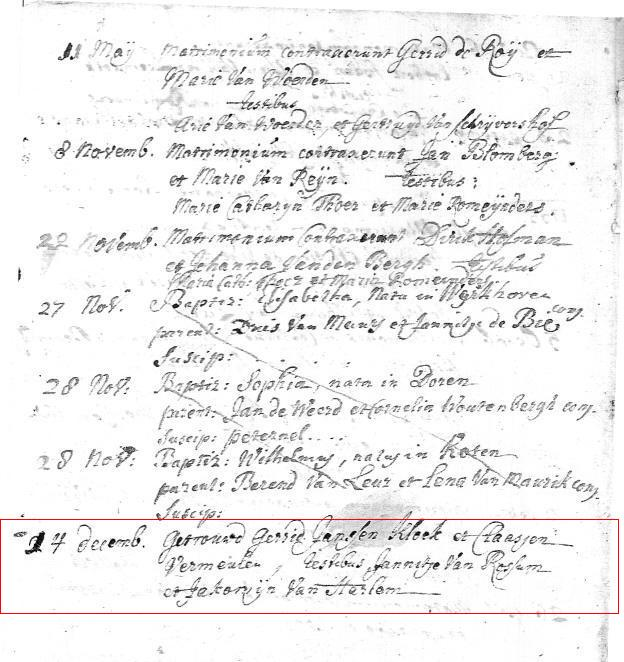 11 Maÿ Matrimonium contraxerunt Gerrid de Roÿ et
Marie Van Woerden
testibus
Arie Van Woerden, et Gertruyd Van Schrijvershof
8 Novemb. Matrimonium contraxerunt Jan Blomberg
et Marie Van Reÿn. testibus:
Marie Catharÿn Thoer et Marie Romeÿnders.
22 Novemb. Matrimonium Contraxerunt Dirk Hofman
et Johanna Vanden Bergh testibus
Maria Cath: et Maria Romeinders
27 Nov: Baptiz: Elisabetha, Nata in Werkhoven
parent: Dnis Van et Jannitje de Bie conj.
Suscip: . . . .
28 Nov: Baptiz: Sophia, nata in Doren
parent: Jan de Weerd et Cornelia Woutenbergh conj.
Suscip: peternel....
28 Nov: Baptiz: Wilhelmus, natus in Koten
parent: Berend Van Leur et Lena Van Maurik conj
Suscip:
14 decemb. Getrouwd Gerrid Janssen Kleek et Claasjen
Vermeulen, testibus Jannitje Van Rossum
et Jakomijn Van Harlem